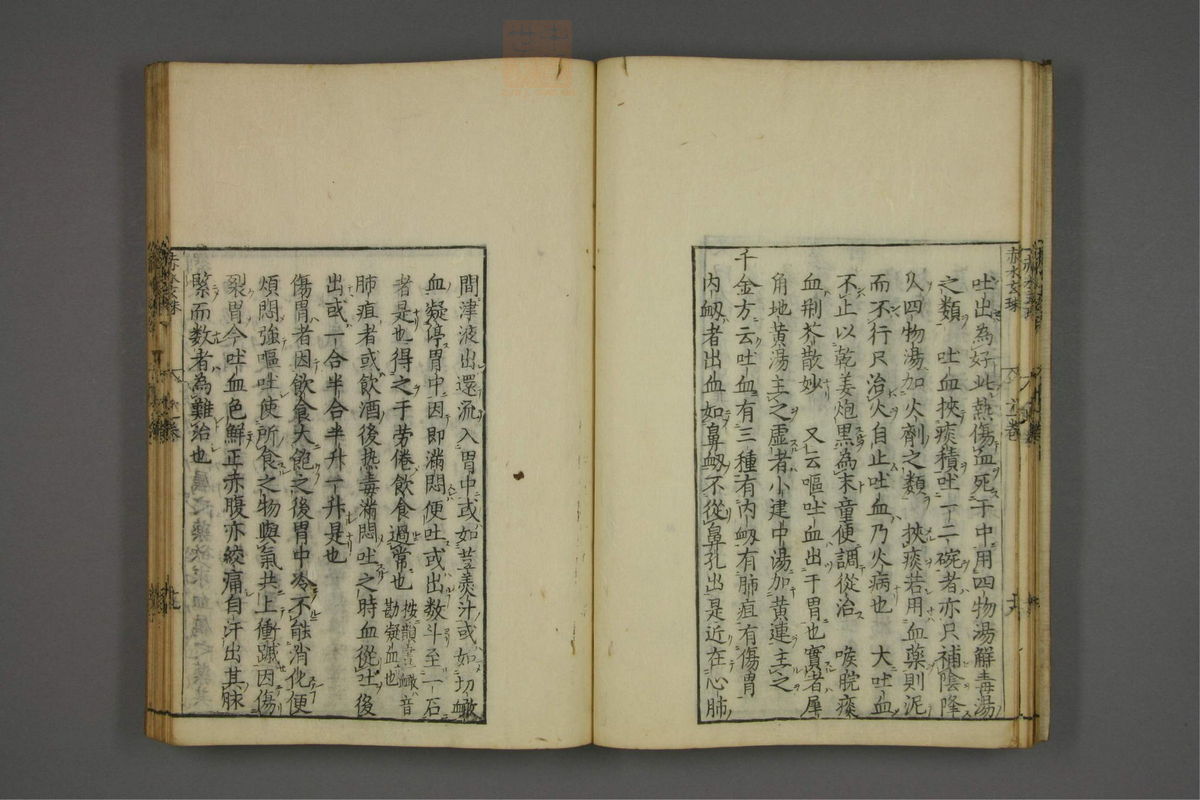 吐出為好此熱傷血死于中用四物湯解毒湯
之類　吐血挾痰積吐一二碗者亦只補陰降
火四物湯加火劑之類　挾痰若用血藥則泥
而不行只治火自止吐血乃火病也　大吐血
不止以乾姜炮黑為末童便調從治　喉脘痰
血荆芥散妙　又云嘔吐血出于胃也實者犀
角地黄湯主之虚者小建中湯加黄連主之
千金方云吐血有三種有内衂有肺疽有傷胃
内衂者出血如鼻衂不從鼻孔出是近在心肺
間津液出還流入胃中或如豆羹汁或如切𧗕
血凝停胃中因即滿悶便吐或出数斗至一石
者是也得之于労倦飲食過常也
按韻書𧗕音
勘凝血也
肺疽者或飲酒後热毒滿悶吐之時血從吐後
出或一合半合半升一升是也
傷胃者因飲食大飽之後胃中冷不能消化便
煩悶強嘔吐使所食之物與氣共上衝蹴因傷
裂胃今吐血色鮮正赤腹亦絞痛自汗出其脉
緊而数者為難治也
赤水玄珠
卷